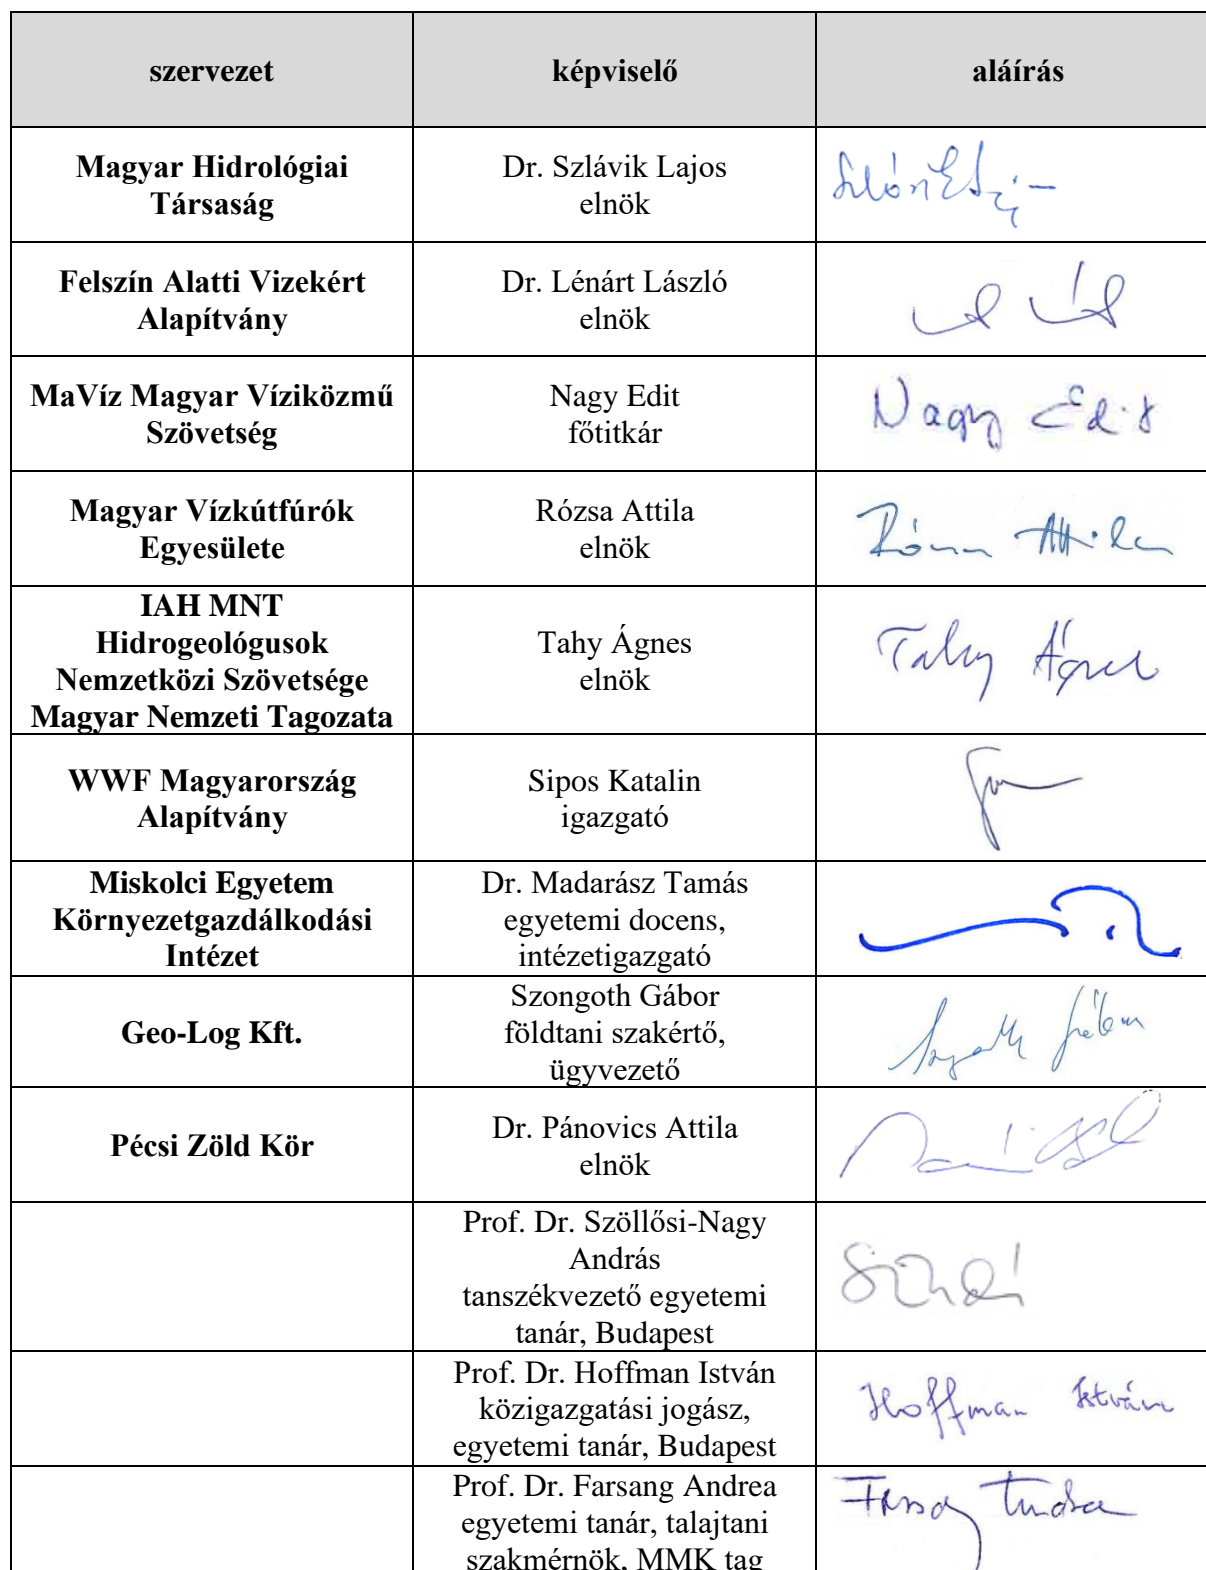 szervezet képviselő aláírás
Magyar Hidrológiai
Társaság
Dr. Szlávik Lajos
elnök
Felszín Alatti Vizekért
Alapítvány
Dr. Lénárt László
elnök
MaVíz Magyar Víziközmű
Szövetség
Nagy Edit
főtitkár
Nagy Edit
Magyar Vízkútfúrók
Egyesülete
Rózsa Attila
elnök
Rózsa Attila
IAH MNT
Hidrogeológusok
Nemzetközi Szövetsége
Magyar Nemzeti Tagozata
Tahy Ágnes
elnök
Tahy Ágnes
WWF Magyarország
Alapítvány
Sipos Katalin
igazgató
Miskolci Egyetem
Környezetgazdálkodási
Intézet
Dr. Madarász Tamás
egyetemi docens,
intézetigazgató
Geo-Log Kft.
Szongoth Gábor
földtani szakértő,
ügyvezető
Pécsi Zöld Kör
Dr. Pánovics Attila
elnök
Prof. Dr. Szöllősi-Nagy
András
tanszékvezető egyetemi
tanár, Budapest
Prof. Dr. Hoffman István
közigazgatási jogász,
egyetemi tanár, Budapest
Hoffman István
Prof. Dr. Farsang Andrea
egyetemi tanár, talajtani
szakmérnök, MMK tag